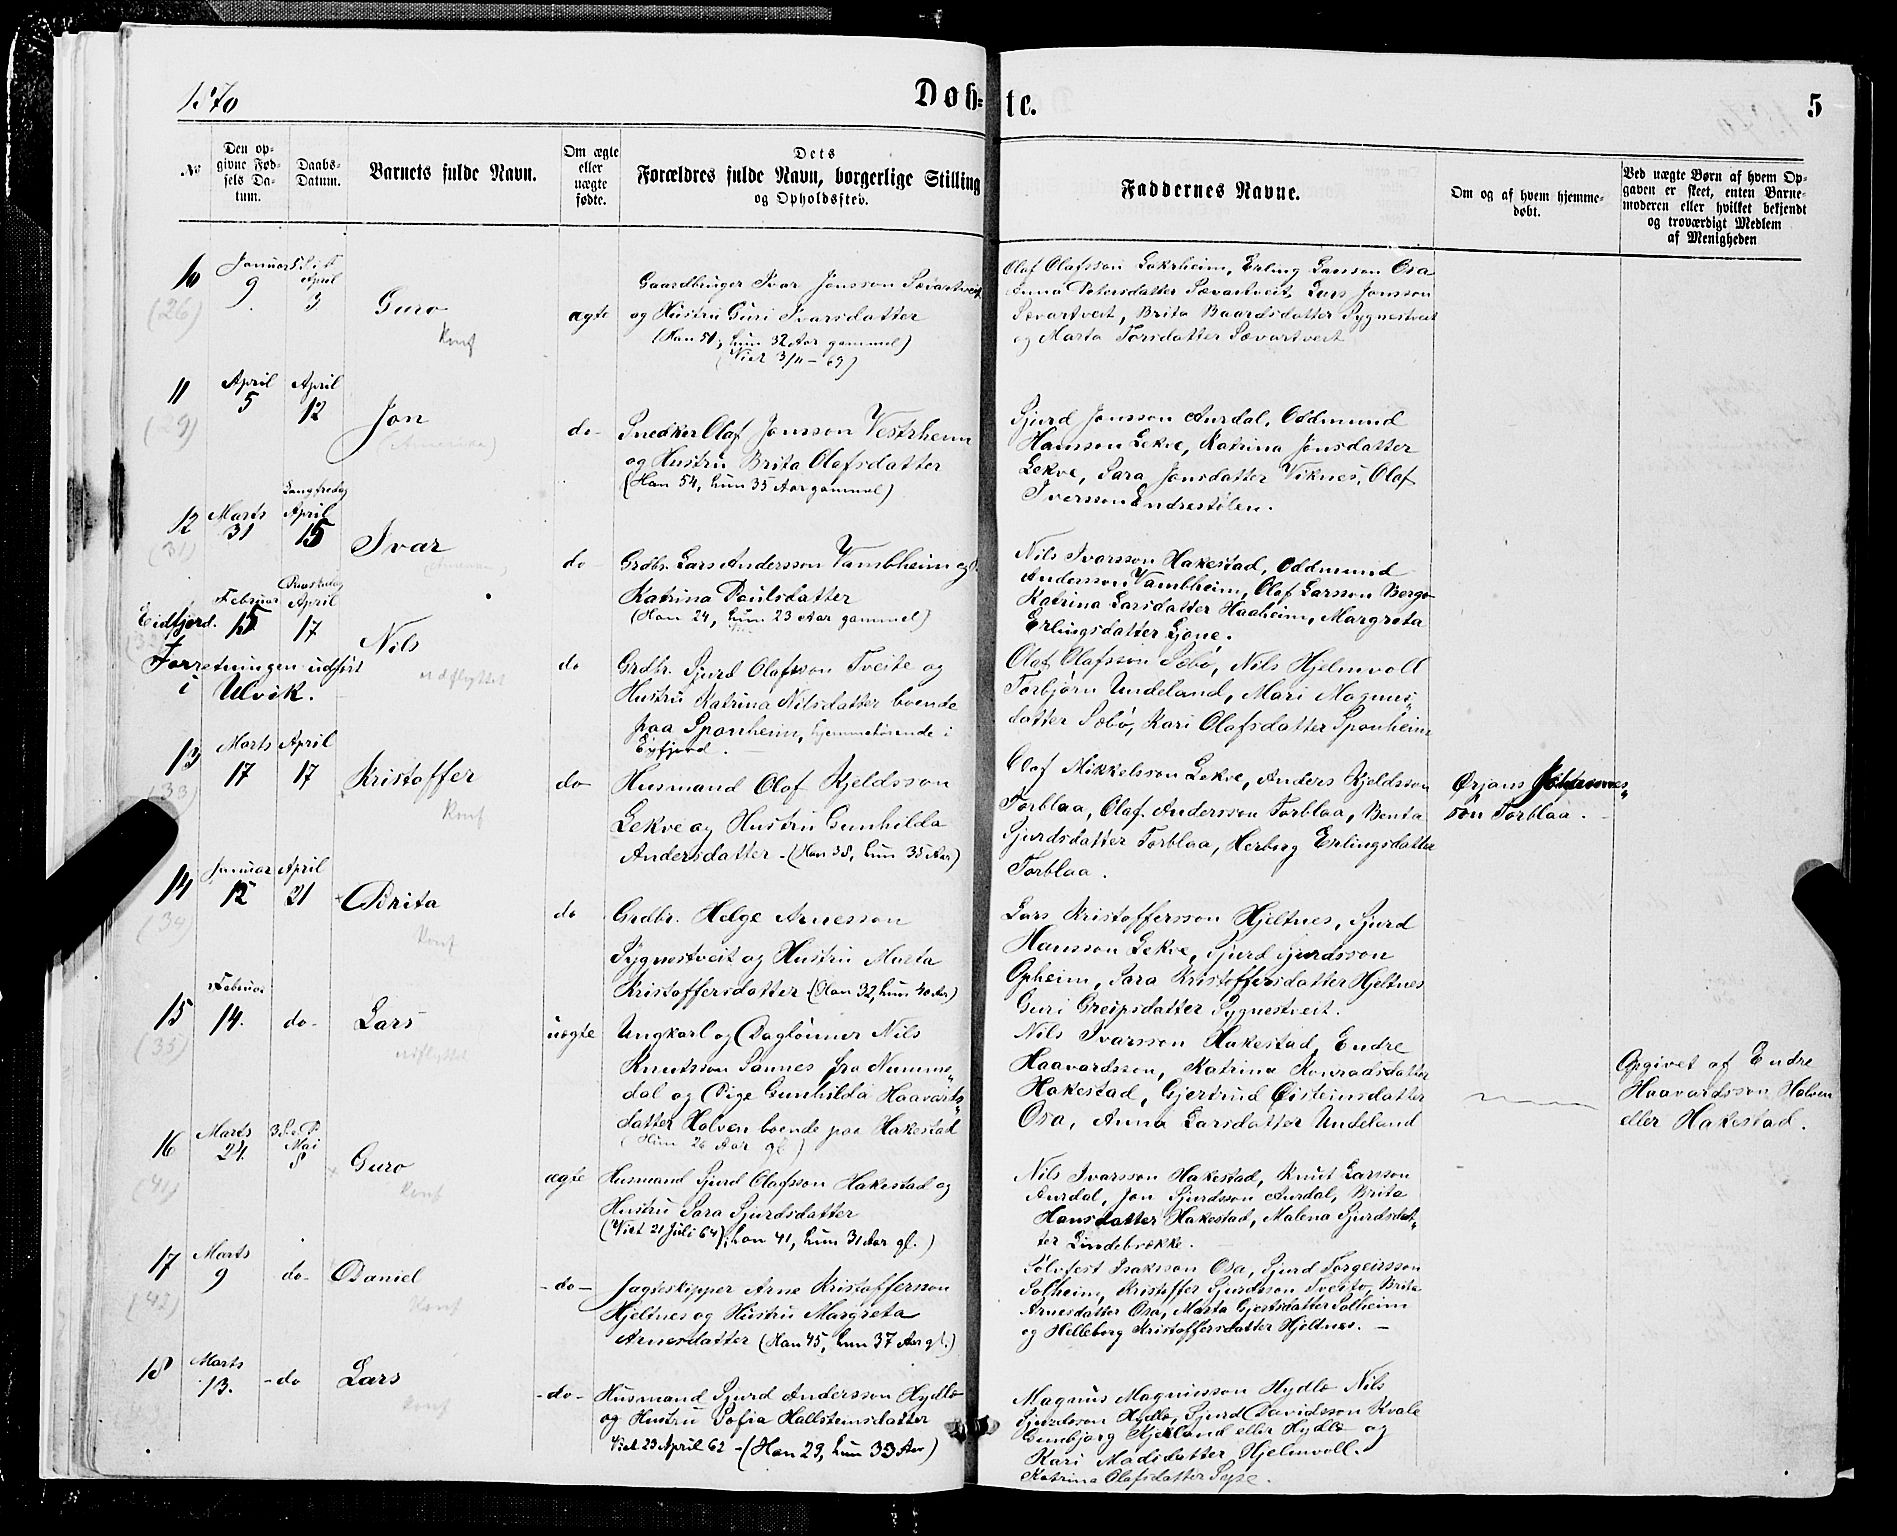 1870
Døb-
te.
5
No
Den op-
givne Fød-
sels Da-
tum.
Daabs-
Datum.
Barnets fulde Navn.
Om ægte
eller
uægte
fødte.
Dets
Forældres fulde Navn, borgerlige Stilling
og Opholdssted.
Faddernes Navne.
Om og af hvem hjemme-
døbt.
Ved uægte Børn af hvem Op-
gaven er skeet, enten Barne-
moderen eller hvilket bekjendt
og troværdigt Medlem
af Menigheden
10
(26)
Januar
9
April
3
Guro
Konf
ægte
Gaardbruger Ivar Jonsson Sævartveit
og Hustru Guri Ivarsdatter
(Han 51, hun 32 Aar gammel)
(Viet 3/11 - 69)
Olaf Olafsson Lekrheim, Erling Larsson Osa
Anna Petersdatter Sævartveit, Lars Jonsson
Sævartveit, Brita Baardsdatter Sygnestveit
og Marta Torsdatter Sævartveit
11
(29)
April
5
April
12
Jon
(Amerika)
do-
Snedker Olaf Jonsson Vestrheim
og Hustru Brita Olafsdatter
(Han 54, hun 35 Aar gammel)
Sjurd Jonsson Aurdal, Oddmund
Hansson Lekve, Katrina Jonsdatter
Lekve, Sara Jonsdatter Viknes, Olaf
Iversson Endrestølen.
12
(31)
Marts
31
Langfredag
April
15
Ivar
do
Grdbr. Lars Andersson Vambheim og
Katrina Poulsdatter
(Han 24, hun 23 Aar gammel)
Nils Ivarsson Hakestad, Oddmund
Andersson Vambheim, Olaf Larsson Berge
Katrina Larsdatter Haaheim, Margreta
Erlingsdatter Ljone.
Eidfjord.
Forretningen udført
i Ulvik.
Februar
15
Paaskedag
April
17
Nils
udflyttet
do
Grdbr. Sjurd Olafsson Tveite og
Hustru Katrina Nilsdatter boende
paa Sponheim, hjemmehørende i
Eyfjord.
Olaf Olafsson Sæbø, Nils Hjelmvoll
Torbjørn Undeland, Mari Magnus-
datter Sæbø, Kari Olafsdatter Sponheim
13
(33)
Marts
17
April
17
Kristoffer
Konf
do
Husmand Olaf Kjeldsson
Lekve og Hustru Gunhilda
Andersdatter - (Han 38, hun 35 Aar)
Olaf Mikkelsson Lekve, Anders Kjeldsson
Torblaa, Olaf Andersson Torblaa, Benta
Sjurdsdatter Torblaa, Herborg Erlingsdatter
Torblaa.
Ørjans Johannes-
søn Torblaa.
14
(34)
Januar
12
April
21
Brita
Konf
do
Grdbr. Helge Arnesson
Sygnestveit og Hustru Marta
Kristoffersdatter (Han 32, hun 40 Aar)
Lars Kristoffersson Hjeltnes, Sjurd
Hansson Lekve, Sjurd Sjurdsson
Opheim, Sara Kristoffersdatter Hjeltnes
Guri Greipsdatter Sygnestveit.
15
(35)
Februar
14.
do-
Lars
udflyttet
uægte
Ungkarl og Daglønner Nils
Knutsson Sannes fra Numme-
dal og Pige Gunhilda Haavards-
datter Holven boende paa Hakestad
(Hun 26 Aar gl)
Nils Ivarsson Hakestad, Endre
Haavardsson, Katrina Konradsdatter
Hakestad, Gjertrud Øisteinsdatter
Osa, Anna Larsdatter Undeland
Opgivet af Endre
Haavardsson Holven
eller Hakestad.
16
(41)
Marts
24
3 S. e. P.
Mai
8
Guro
Konf
ægte
Husmand Sjurd Olafsson Hakestad og
Hustru Sara Sjurdsdatter
(Viet 21 Juli 64), han 41, hun 31 Aar gl.)
Nils Ivarsson Hakestad, Knut Larsson
Aurdal, Jon Sjurdsson Aurdal, Brita
Hansdatter Hakestad, Malena Sjurdsdat-
ter Lindebrække.
17
(42)
Marts
9
do-
Daniel
Konf
-do-
Jagteskipper Arne Kristoffersson
Hjeltnes og Hustru Margreta
Arnesdatter (Han 45, hun 37 Aar gl.)
Sølvfest Isaksson Osa, Sjurd Torgeirsson
Solheim, Kristoffer Sjurdsson Tveito, Brita
Arnesdatter Osa, Marta Gjertsdatter Solheim
og Helleborg Kristoffersdatter Hjeltnes. -
18
Marts
13.
-do
Lars
Konf
-do-
Husmand Sjurd Andersson Hydle
og Hustru Sofia Hallsteinsdatter
Viet 23 April 62 - (Han 29, hun 33 Aar)
Magnus Magnusson Hydle Nils
Sjurdsson Hydle, Sjurd Davidsson Kvale
Gunbjørg Kjelland eller Hydle og
Kari Madsdatter Hjelmvoll.
Katrina Olafsdatter Syse.